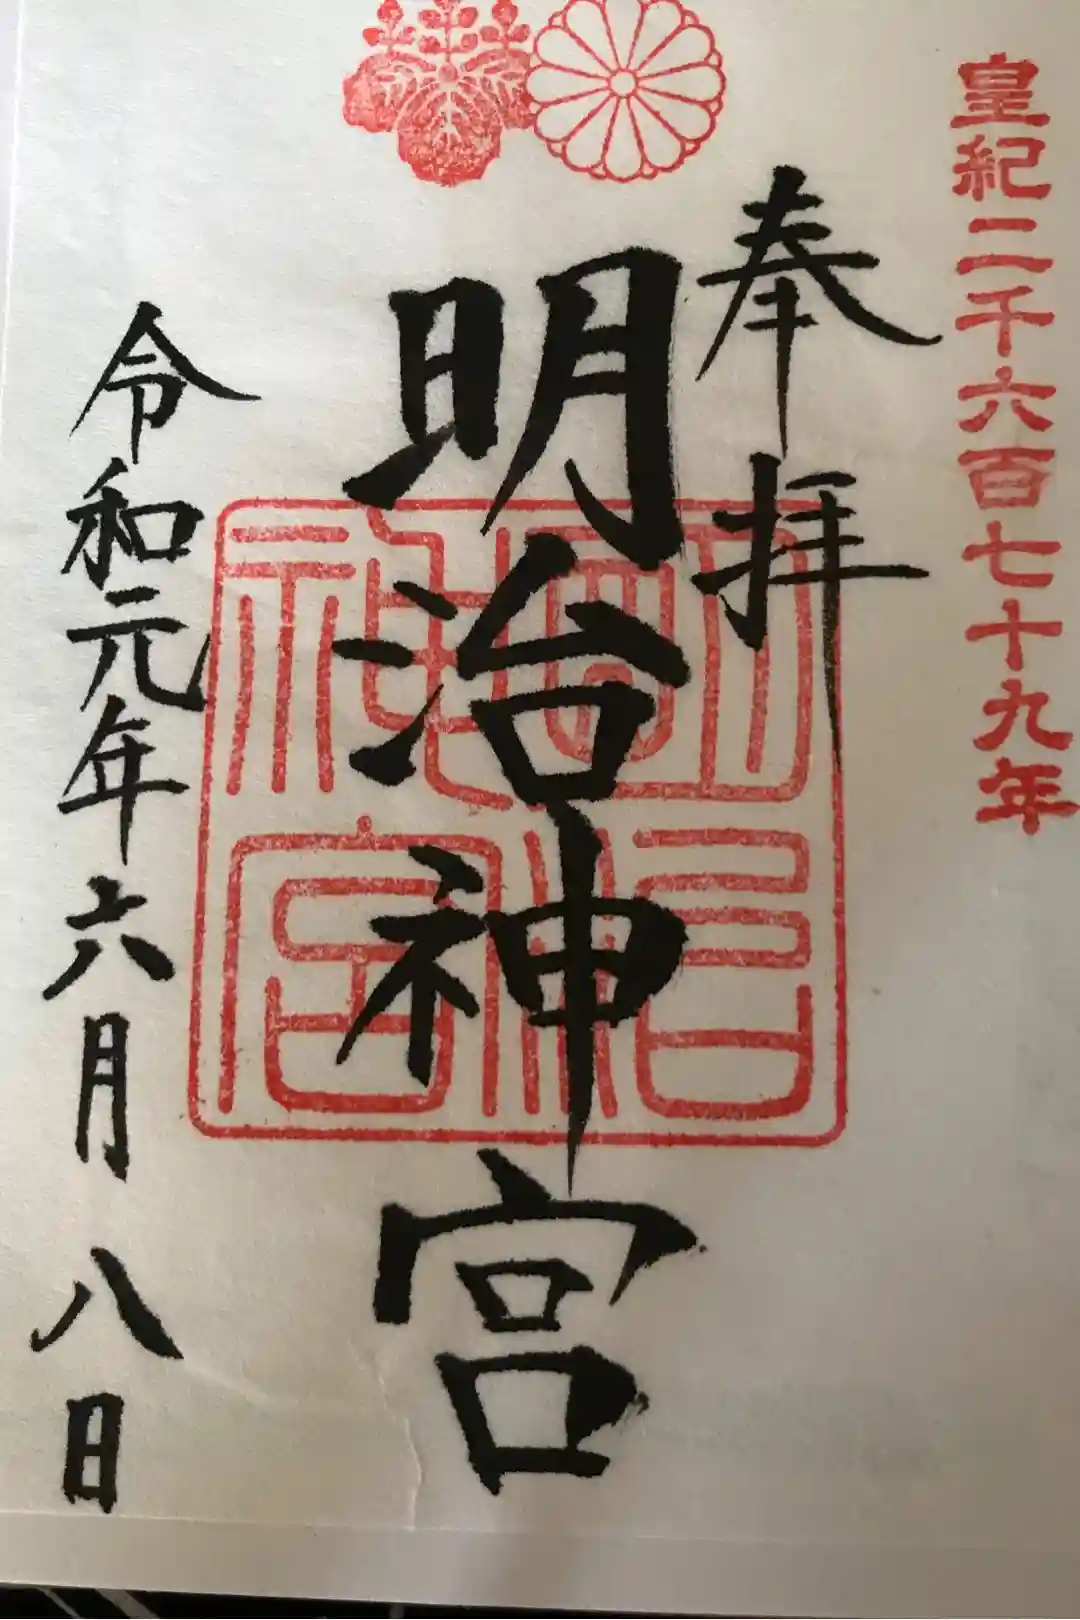 皇紀二千六百七十九年
奉拝
明治神宮
明治神宮
令和元年六月八日